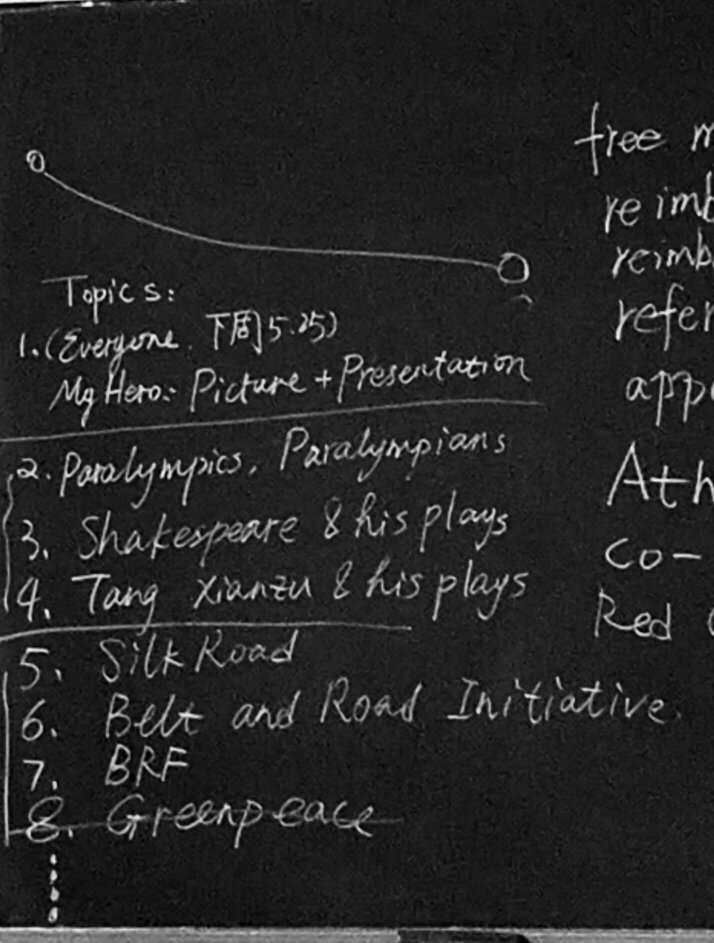 Topics:
1. (Everyone. 下周5.25)
My Hero: Picture + Presentation
2. Paralympics, Paralympians
3. Shakespeare & his plays
4. Tang Xianzu & his plays
5. Silk Road
6. Belt and Road Initiative.
7. BRF
8. Greenpeace
free m
reimb
reimb
refer
app
Ath
co-
Red